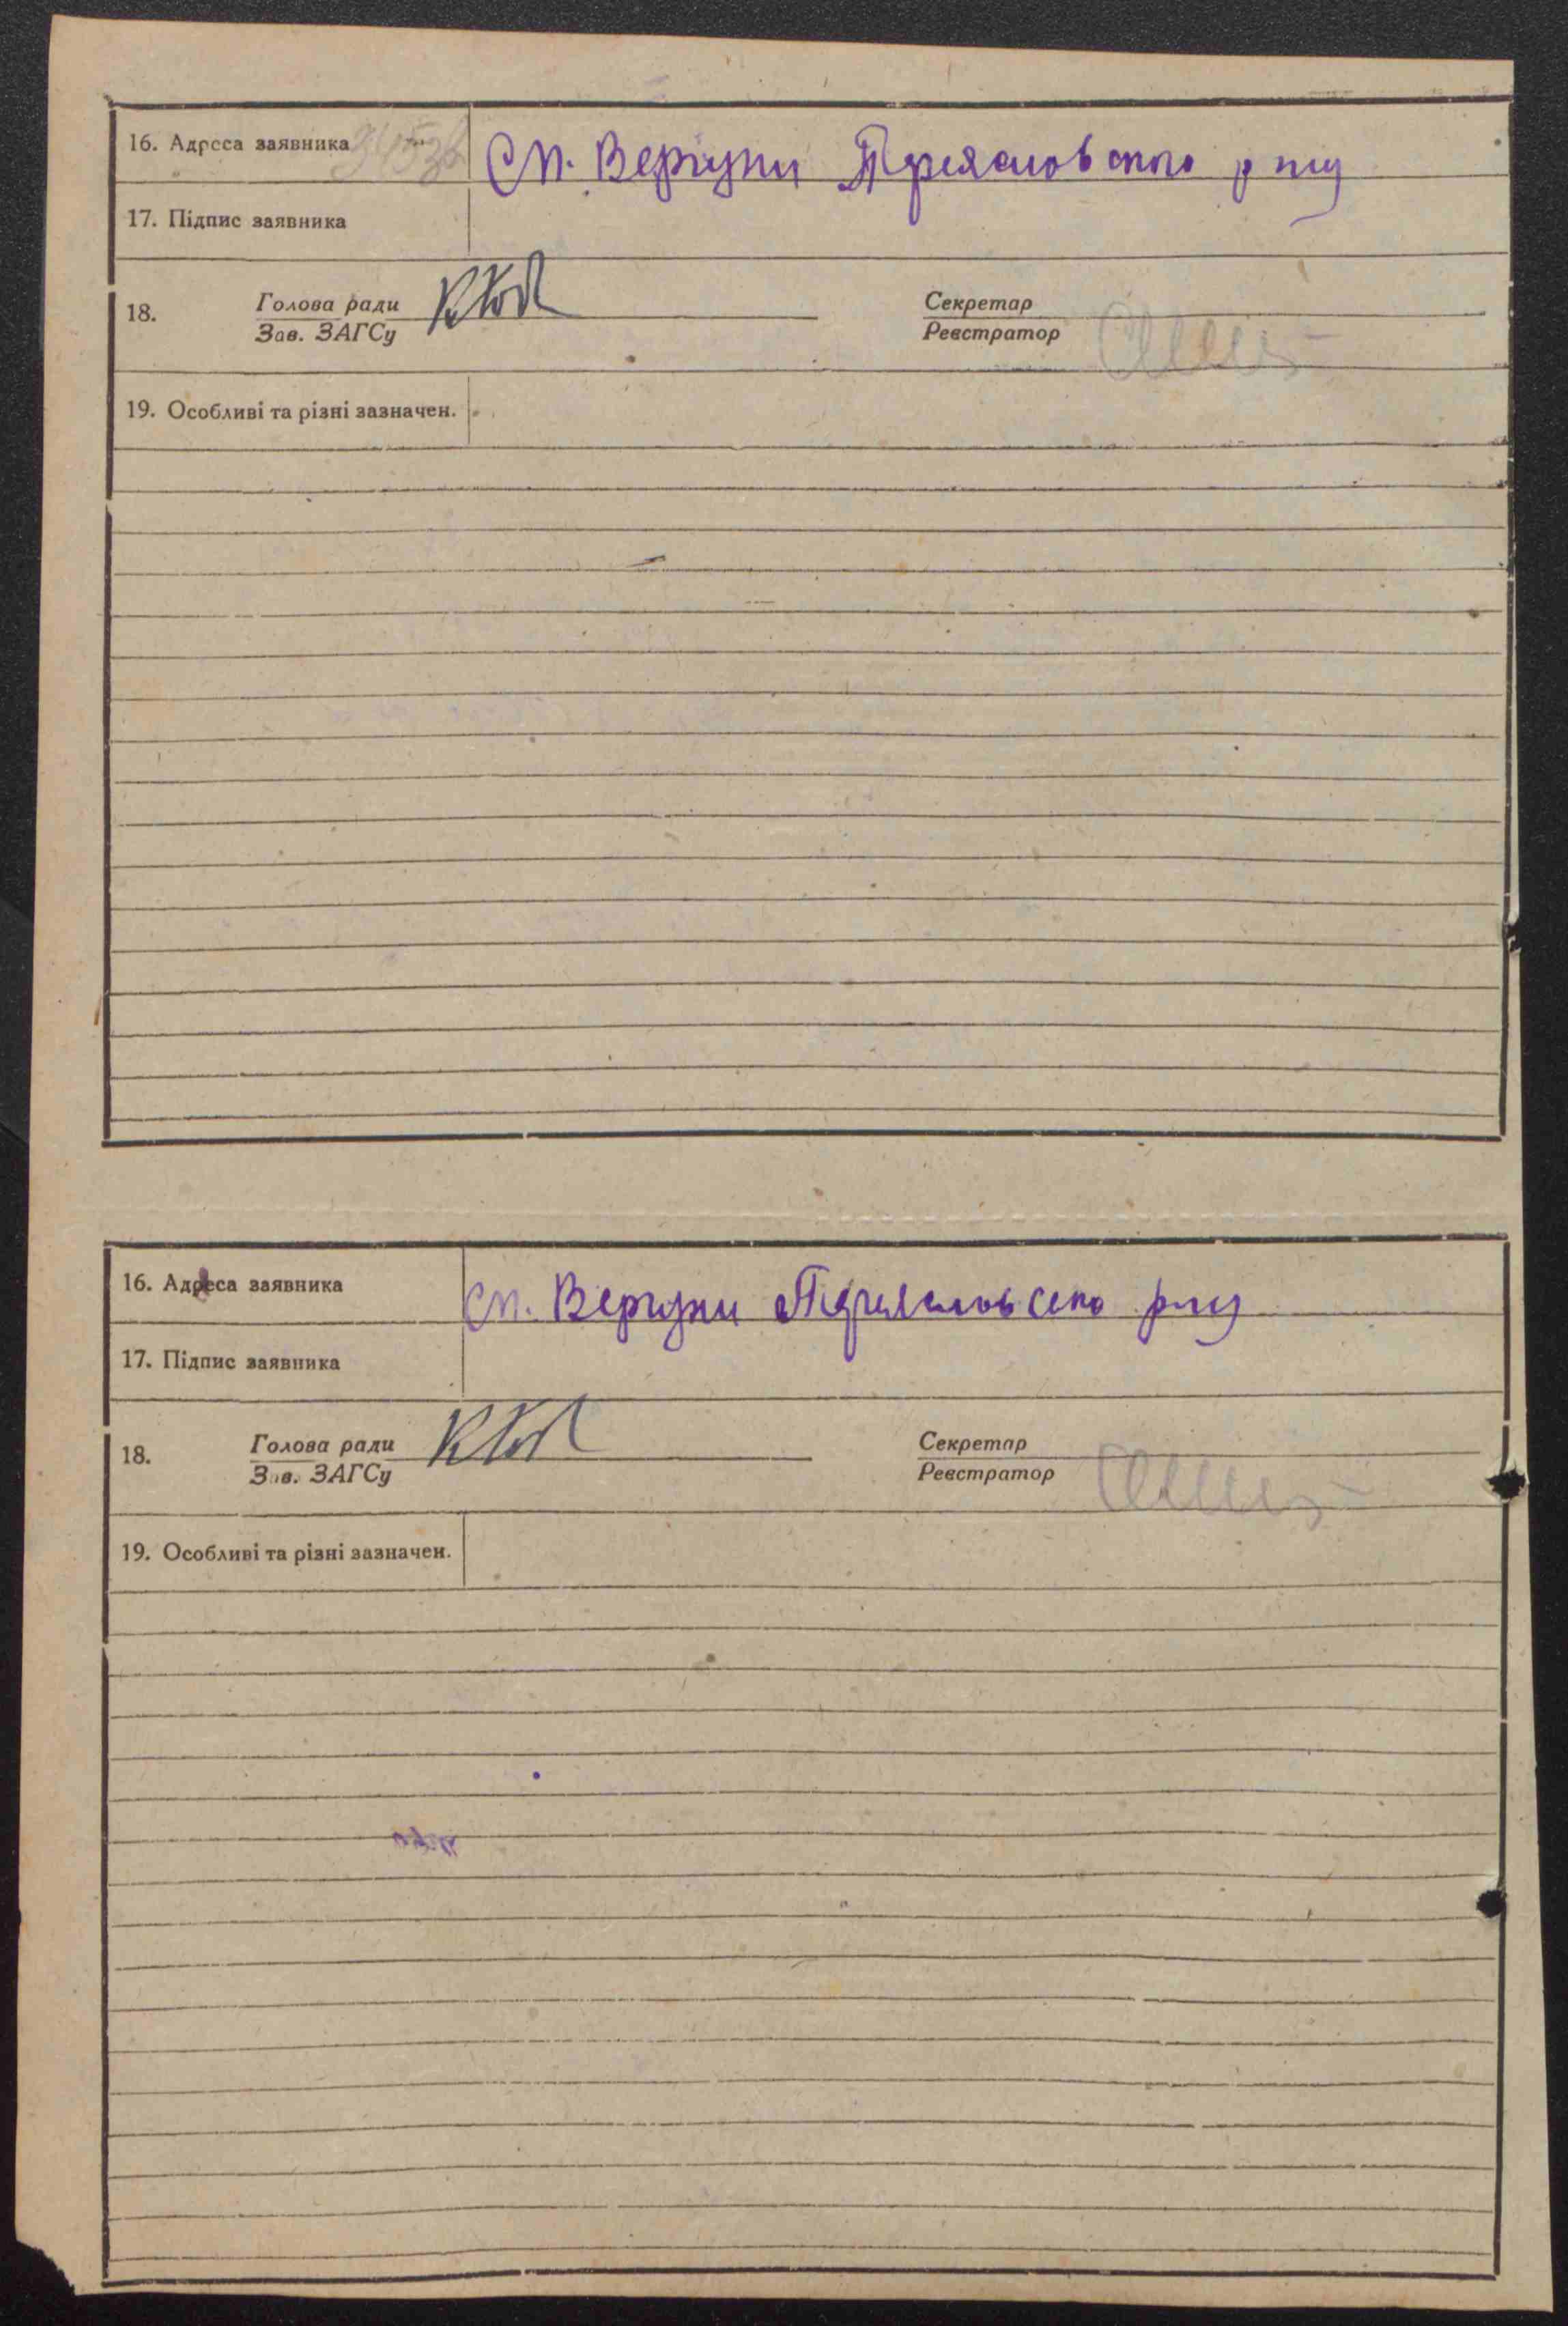 16. Адреса заявника ст. Вергуни Переяслов ского р ну
17. Підпис заявника
18. Голова ради Секретар
Зав. ЗАГСу Реєстратор
19. Особливі та різні зазначен.
16. Адреса заявника ст. Вергуни Переясловсого рну
17. Підпис заявника
18. Голова ради Секретар
Зав. ЗАГСу Реєстратор
19. Особливі та різні зазначен.